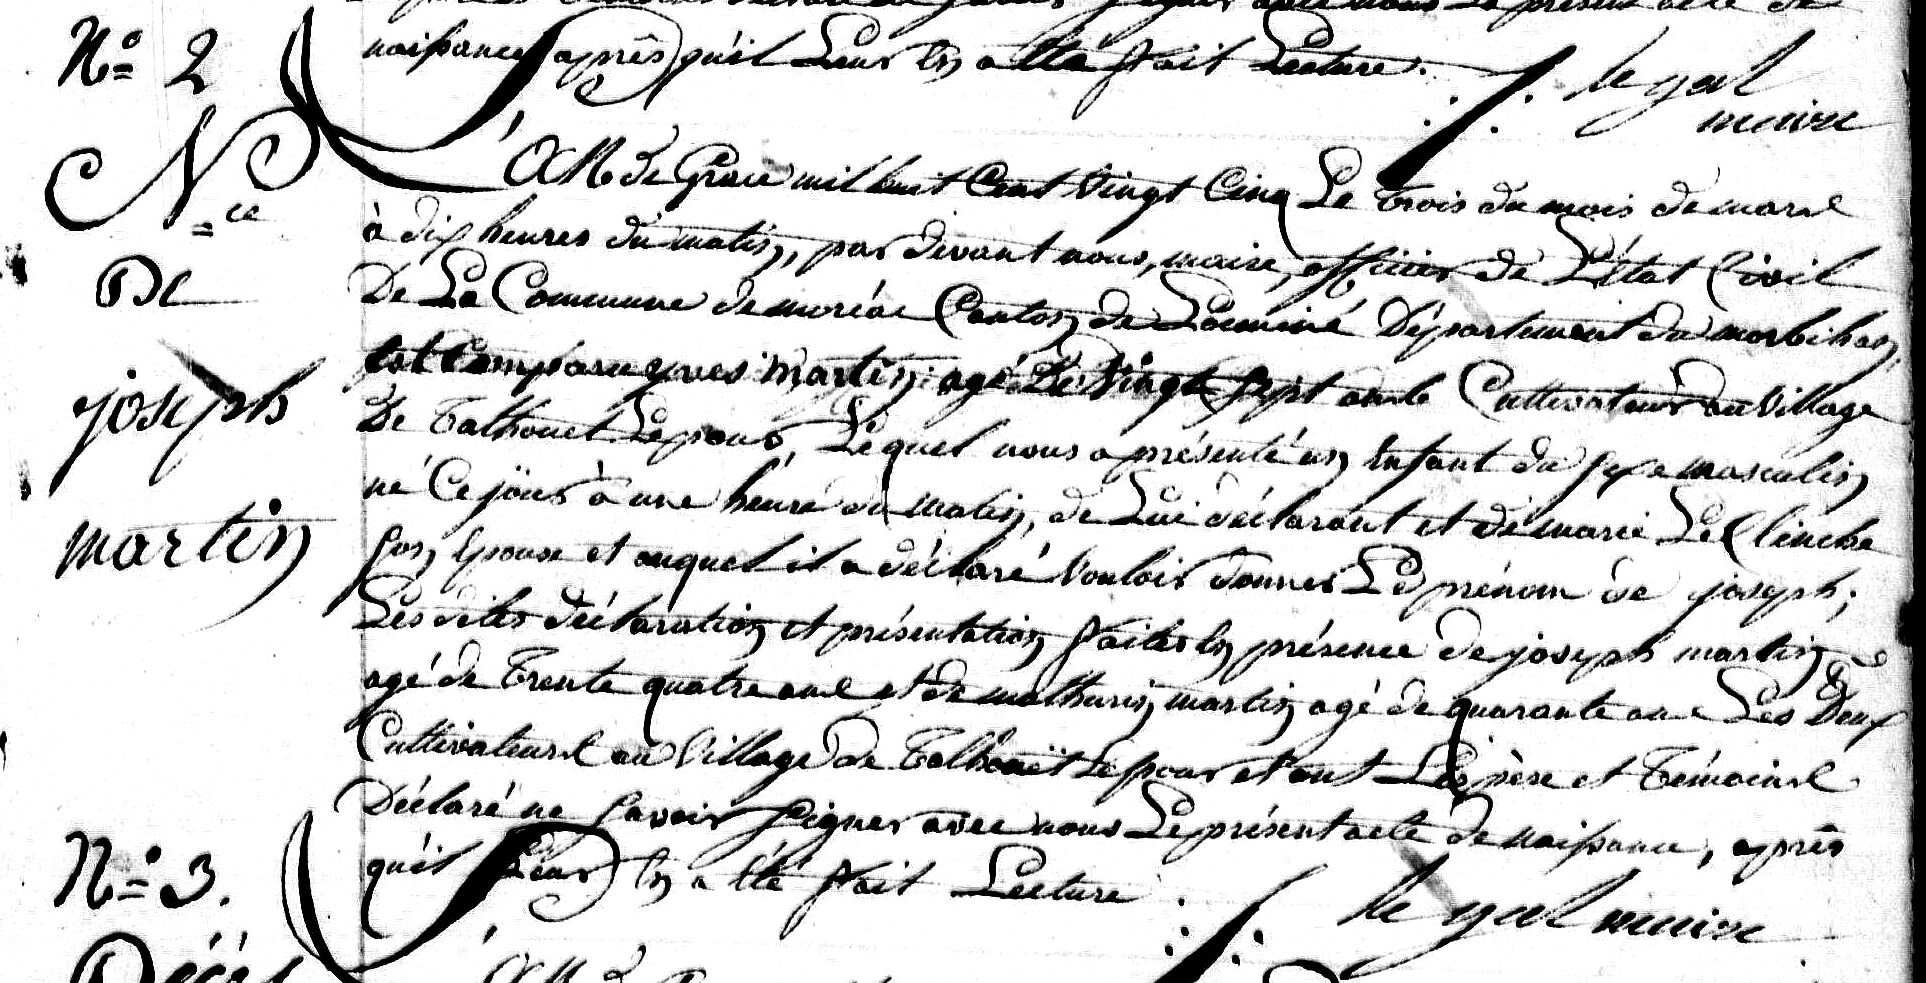 naissance après qu'il Leur En a Été fait Lecture.
le gal
maire
N.° 2
N.ce
De
joseph
martin
L'AN de Grace mil huit Cent Vingt Cinq Le Trois du mois de mars
à dix heures du matin, par devant nous, maire, officier de L'État Civil
De La Commune de moréac Canton de Locminé Département du morbihan
Est Comparu yves martin agé De Vingt Sept ans Cultivateur au Village
De Talhouet Le pour, Lequel nous a présenté un Enfant du Sexe masculin
né Ce jour à une heure du matin, de Lui déclarant et de marie Le Clinche
Son Épouse et auquel il a déclaré Vouloir donner Le prénom de joseph;
Les dites déclaration et présentation faites En présence de joseph martin
agé de Trente quatre ans et de mathurin martin agé de quarante ans Les Deux
Cultivateurs au Village de Talhouët Le pour et ont Les père et Témoins
Déclaré ne Savoir Signer avec nous Le présent acte de naissance, après
qu'il Leur En a Été fait Lecture.
le gal maire
N.° 3.
Décés
L'AN de